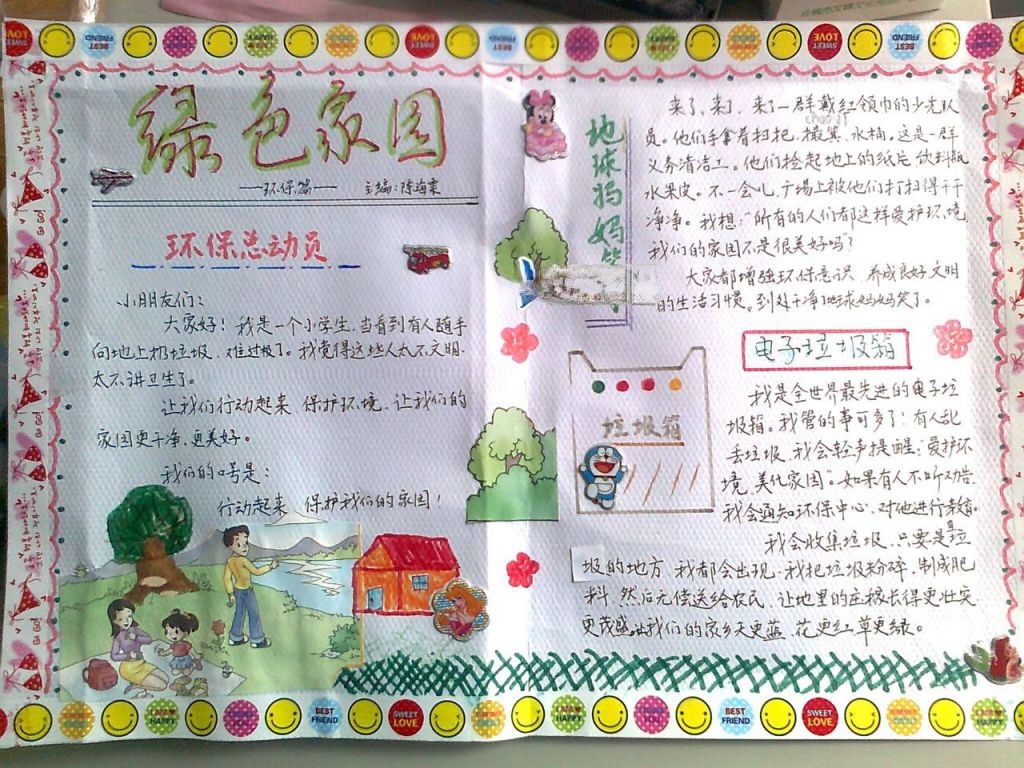 绿色家园
—环保篇— 主编:陈海雲
环保总动员
小朋友们:
大家好！我是一个小学生，当看到有人随手
向地上扔垃圾，难过极了。我觉得这些人太不文明，
太不讲卫生了。
让我们行动起来，保护环境，让我们的
家园更干净，更美好。
我们的口号是:
行动起来 保护我们的家园！
地球妈妈笑
来了，来了，来了一群戴红领巾的少先队
员。他们手拿着扫把，撮箕，水桶。这是一群
义务清洁工。他们捡起地上的纸片，饮料瓶
水果皮。不一会儿，广场上被他们打扫得干干
净净。我想:“所有的人们都这样爱护环境，
我们的家园不是很美好吗？”
大家都增强环保意识，养成良好文明
的生活习惯。到处干净地球妈妈笑了。
电子垃圾箱
垃圾箱
我是全世界最先进的电子垃
圾箱。我管的事可多了！有人乱
丢垃圾，我会轻声提醒:“爱护环
境，美化家园”。如果有人不听劝告，
我会通知环保中心，对他进行教育。
我会收集垃圾，只要是有垃
圾的地方，我都会出现，我把垃圾粉碎，制成肥
料，然后无偿送给农民，让地里的庄稼长得更壮实
更茂盛。让我们的家乡天更蓝，花更红，草更绿。
BEST FRIEND
SWEET LOVE
I AM HAPPY